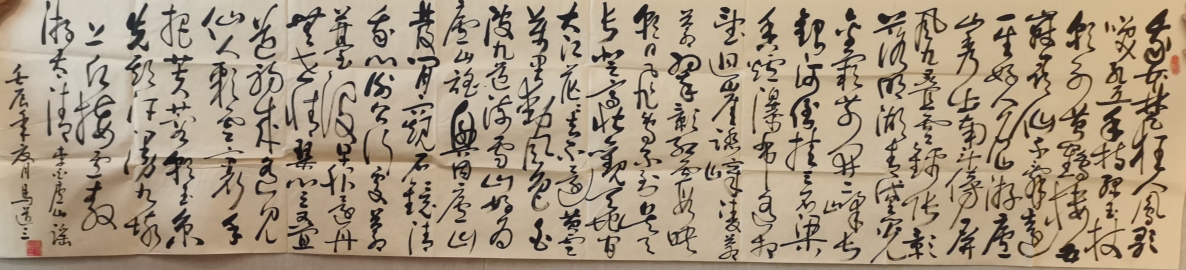 我本楚狂人鳳歌
笑孔丘手持綠玉杖
朝別黃鶴樓五
嶽尋仙不辭遠
一生好入名山游廬
山秀出南斗傍屏
風九疊雲錦張影
落明湖青黛光
金闕前開二峰長
銀河倒掛三石梁
香爐瀑布遥相
望迴崖沓嶂凌蒼
蒼翠影紅霞映
朝日鳥飛不到吳天
長登高壯觀天地間
大江茫茫去不還黃雲
萬里動風色白
波九道流雪山好為
廬山謠興因廬山
發閒窺石鏡清
我心謝公行處蒼
苔沒早服還丹
無世情琴心三疊
道初成遥見
仙人彩雲裏手
把芙蓉朝玉京
先期汗漫九垓
上願接盧敖
游太清 李白廬山謠
壬辰季夏月馬道三